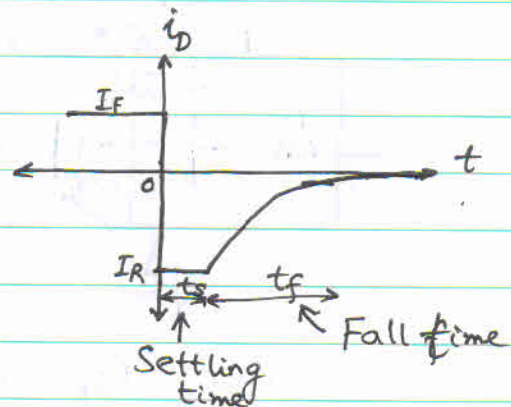 i_D
I_F
t
0
I_R
ts
tf
Fall time
Settling
time